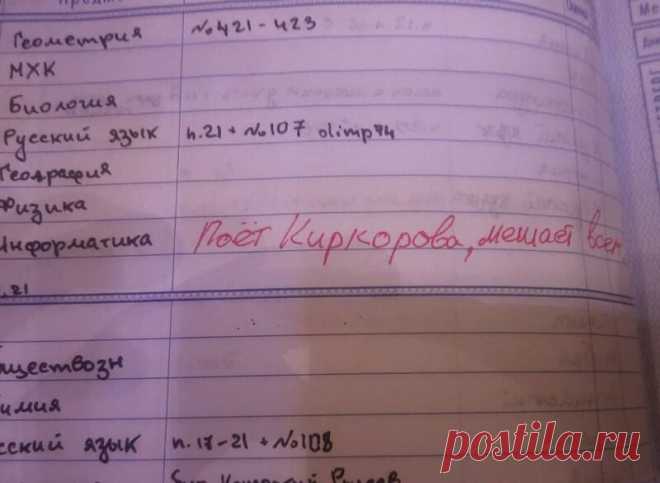 Геометрия №421-423
МХК
Биология
Русский язык п.21 + №107 olimp74
География
Физика
Информатика Поёт Киркорова, мешает всем
п.21
бществозн
имия
сский язык п.17-21 + №108
postila.ru